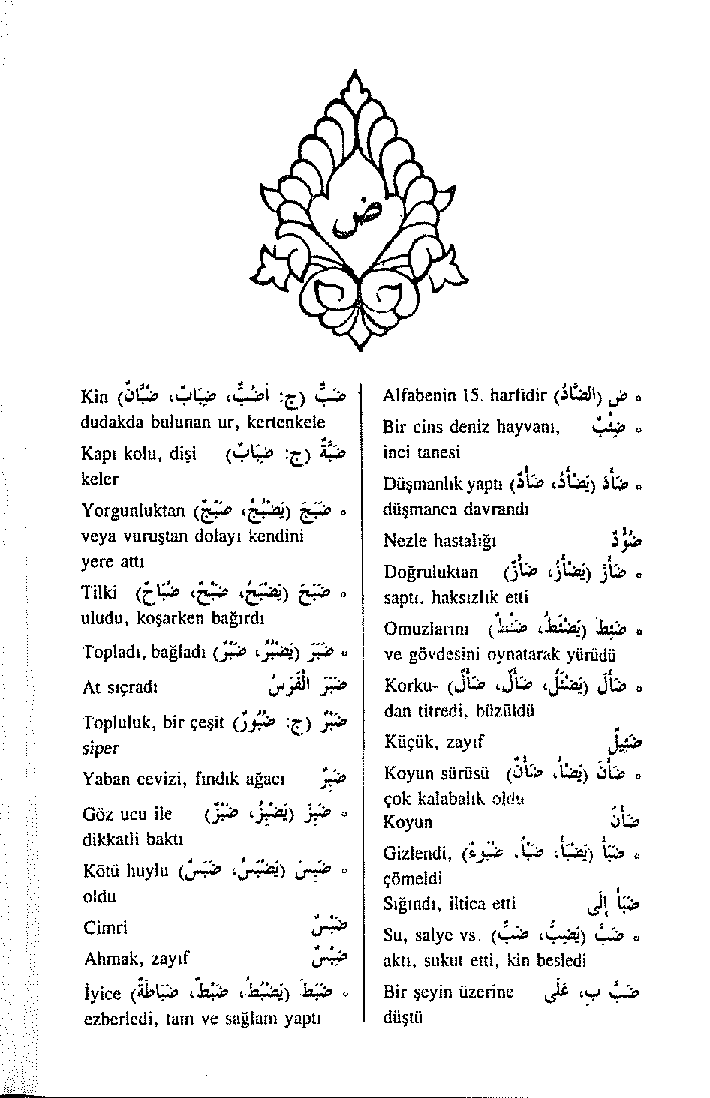 ض
ض (الضَّادُ) Alfabenin 15. harfidir
ضِئْبٌ Bir cins deniz hayvanı,
inci tanesi
ضَأَدَ (يَضْأَدُ، ضَأْدٌ) Düşmanlık yaptı
düşmanca davrandı
ضُؤْدٌ Nezle hastalığı
ضَأَزَ (يَضْأَزُ، ضَأْزٌ) Doğruluktan
saptı, haksızlık etti
Omuzlarını
ve gövdesini oynatarak yürüdü
Korku-
dan titredi, büzüldü
ضَئِيلٌ Küçük, zayıf
ضَأَنَ Koyun sürüsü
çok kalabalık oldu
ضَأْنٌ Koyun
ضَبَأَ Gizlendi,
çömeldi
ضَبَأَ إِلَى Sığındı, iltica etti
ضَبَّ (يَضِبُّ، ضَبٌّ) Su, salye vs.
aktı, sukut etti, kin besledi
ضَبَّ بِ، عَلَى Bir şeyin üzerine
düştü
ضَبٌّ (ج: أَضُبٌّ، ضِبَابٌ، ضُبَّانٌ) Kin
dudakda bulunan ur, kertenkele
ضَبَّةٌ (ج: ضِبَابٌ) Kapı kolu, dişi
keler
Yorgunluktan
veya vuruştan dolayı kendini
yere attı
Tilki
uludu, koşarken bağırdı
ضَبَرَ (يَضْبُرُ، ضَبْرٌ) Topladı, bağladı
ضَبَرَ الْفَرَسُ At sıçradı
ضَبْرٌ (ج: ضُبُورٌ) Topluluk, bir çeşit
siper
ضَبْرٌ Yaban cevizi, fındık ağacı
ضَبَزَ (يَضْبِزُ، ضَبْزٌ) Göz ucu ile
dikkatli baktı
ضَبِسَ (يَضْبَسُ، ضَبَسٌ) Kötü huylu
oldu
Cimri
Ahmak, zayıf
ضَبَطَ (يَضْبُطُ، ضَبْطٌ، ضَبَاطَةٌ) İyice
ezberledi, tam ve sağlam yaptı